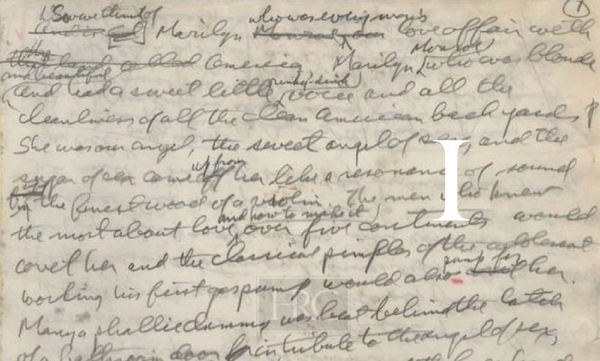 (1
So we think of Marilyn who was every man's love affair with
America, Marilyn Monroe who was blonde
and beautiful and had a sweet little rinky-dink voice and all the
cleanliness of all the clean American back yards.
She was our angel, the sweet angel of sex, and the
sugar of sex came up from her like a resonance of sound
in the finest wood of a violin. The men who knew
the most about love and how to make it over five continents would
covet her and the classical pimples of the adolescent
working his first gas pump would also pump for her.
Many a
was beat behind the latch
of a door in tribute to the angel of sex,
I
HRC